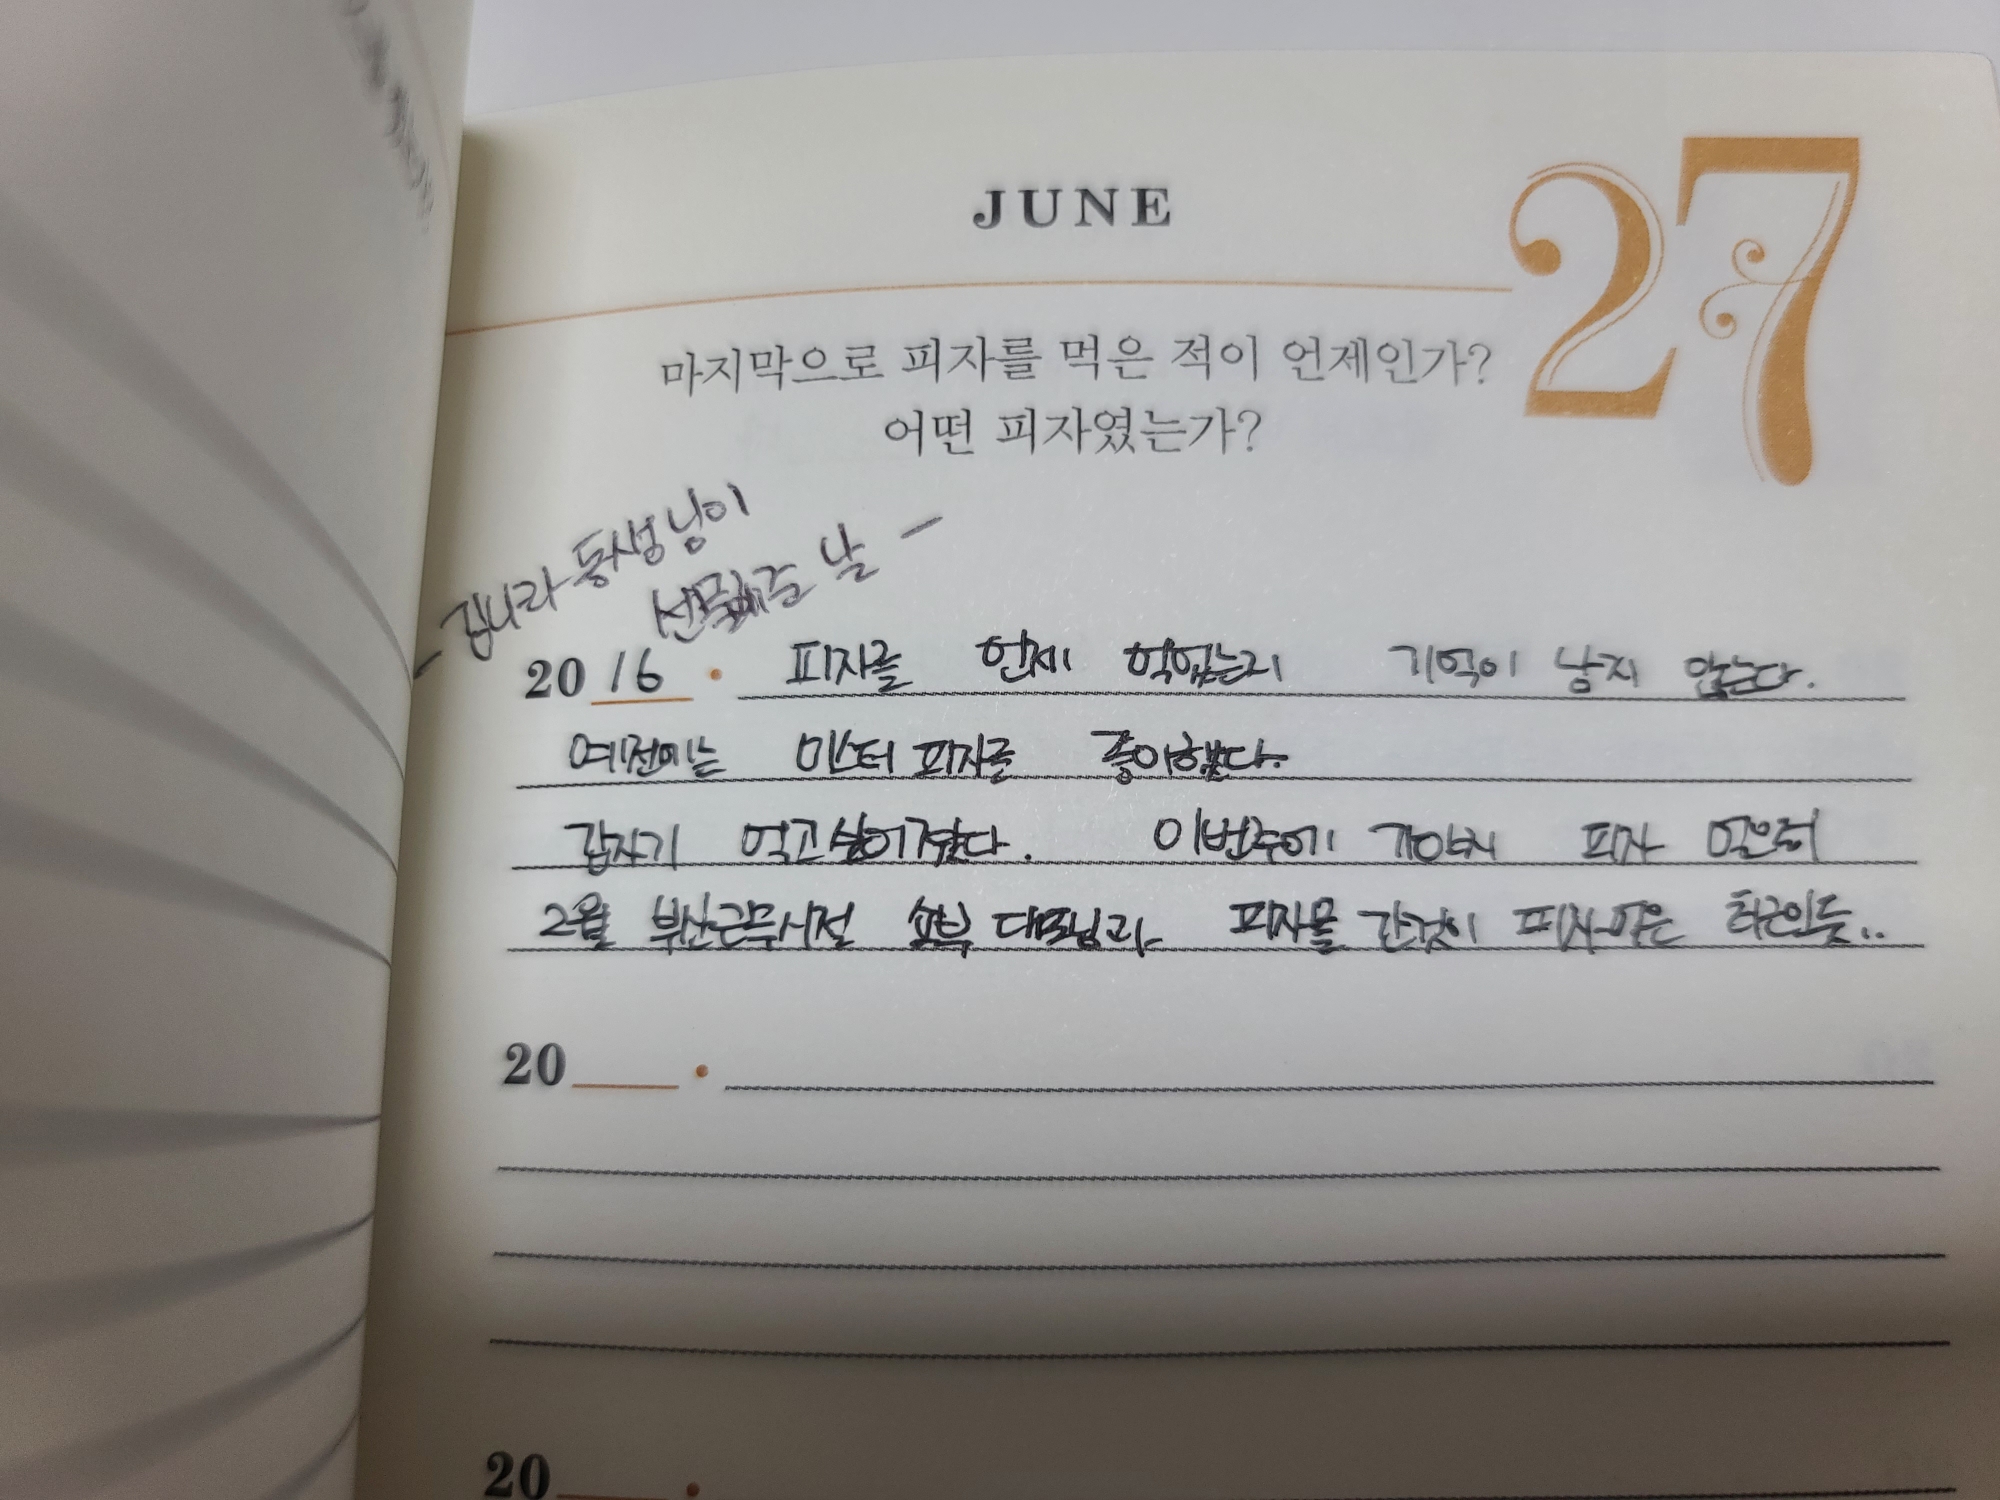 JUNE
27
마지막으로 피자를 먹은 적이 언제인가?
어떤 피자였는가?
- 김나라 동생님이
선물해준 날 -
2016 · 피자를 언제 먹었는지 기억이 남지 않는다.
예전에는 미스터 피자를 좋아했다.
갑자기 먹고싶어졌다. 이번주에 피자
2월 부산근무시절 대표님과 피자몰 간것이 피자먹은 최근인듯..
20 ·
20 ·